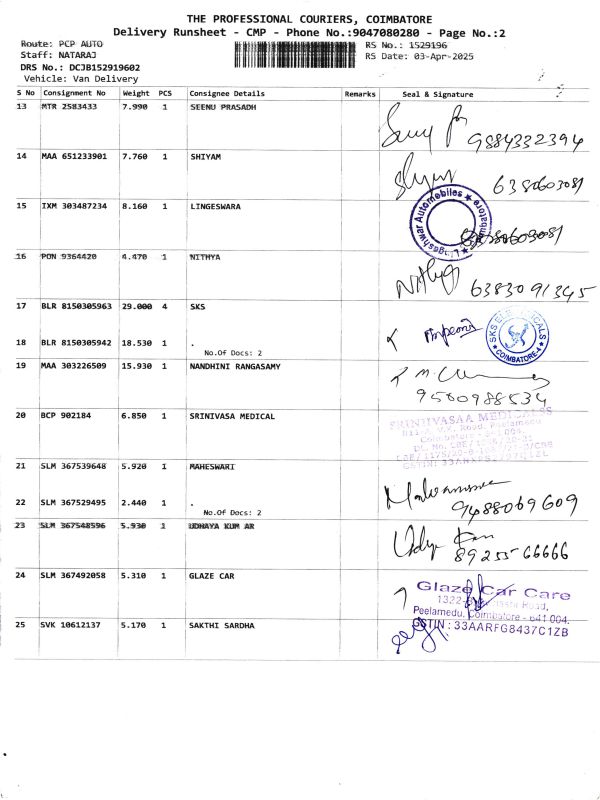 THE PROFESSIONAL COURIERS, COIMBATORE
Delivery Runsheet - CMP - Phone No.:9047080280 - Page No.:2
Route: PCP AUTO
RS No.: 1529196
Staff: NATARAJ
RS Date: 03-Apr-2025
DRS No.: DCJB152919602
Vehicle: Van Delivery
S No Consignment No Weight PCS Consignee Details Remarks Seal & Signature
13 MTR 2583433 7.990 1 SEENU PRASADH
9884332394
14 MAA 651233901 7.760 1 SHIYAM
Shyam
15 IXM 303487234 8.160 1 LINGESWARA
16 PON 9364420 4.470 1 NITHYA
Nithya 6383091345
17 BLR 8150305963 29.000 4 SKS
SKS ELECTRICALS
COIMBATORE-4
18 BLR 8150305942 18.530 1 .
No.Of Docs: 2
19 MAA 303226509 15.930 1 NANDHINI RANGASAMY
9500988534
20 BCP 902184 6.850 1 SRINIVASA MEDICAL
SRINIVASAA MEDICALSS
21 SLM 367539648 5.920 1 MAHESWARI
22 SLM 367529495 2.440 1 .
No.Of Docs: 2
9488069609
23 SLM 367548596 5.930 1 UDHAYA KUM AR
89255 66666
24 SLM 367492058 5.310 1 GLAZE CAR
Glaze Car Care
Peelamedu, Coimbatore - 641 004.
GSTIN : 33AARFG8437C1ZB
25 SVK 10612137 5.170 1 SAKTHI SARDHA